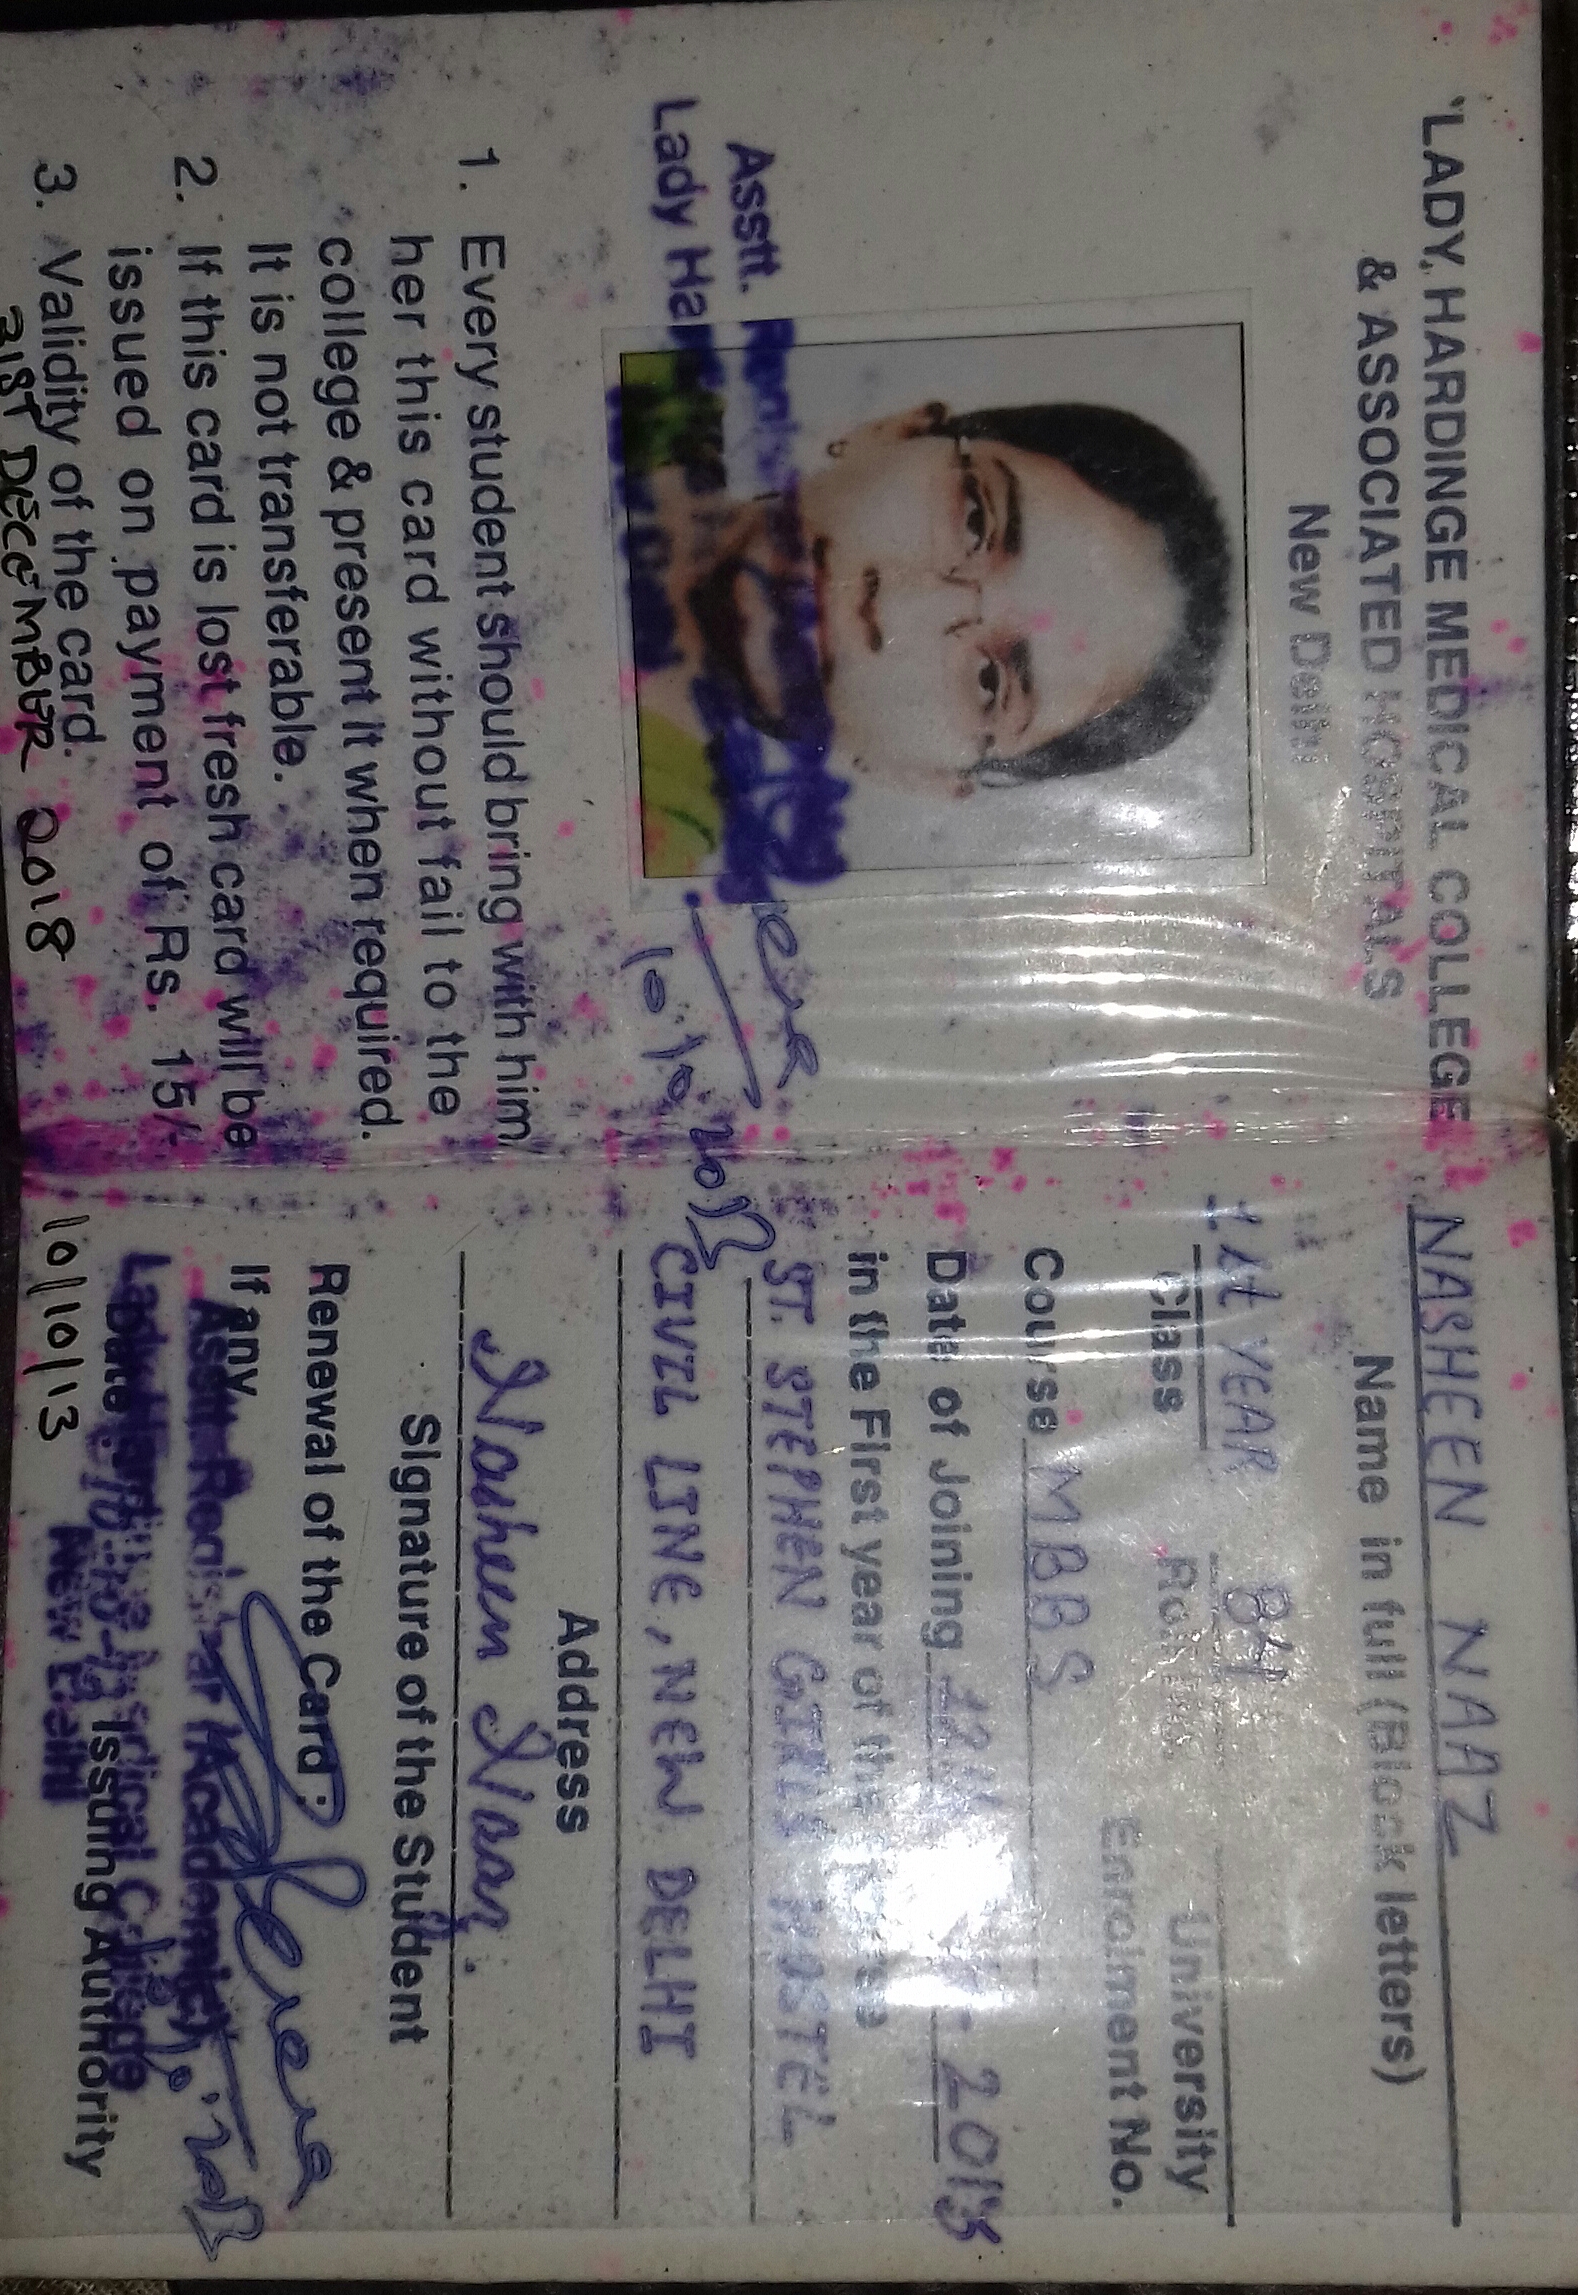 'LADY, HARDINGE MEDICAL COLLEGE
& ASSOCIATED HOSPITALS
New Delhi
Asstt.
Lady Har
10/10/2013
1. Every student should bring with him/
her this card without fail to the
college & present it when required.
It is not transferable.
2. If this card is lost fresh card will be
issued on payment of Rs. 15/-
3. Validity of the card.
31ST DECEMBER 2018
NASHEEN NAAZ
Name in full (Block letters)
1st YEAR 84
Class Roll No. University
Enrolment No.
Course MBBS
Date of Joining 2013
in the First year of the
ST. STEPHEN GIRLS HOSTEL
CIVIL LINE, NEW DELHI
Address
Nasheen Naaz.
Signature of the Student
Renewal of the Card:
If any
Asstt. Registrar (Academic)
Lady Hardinge Medical College
New Delhi
Date 10-10-13 Issuing Authority
10/10/13